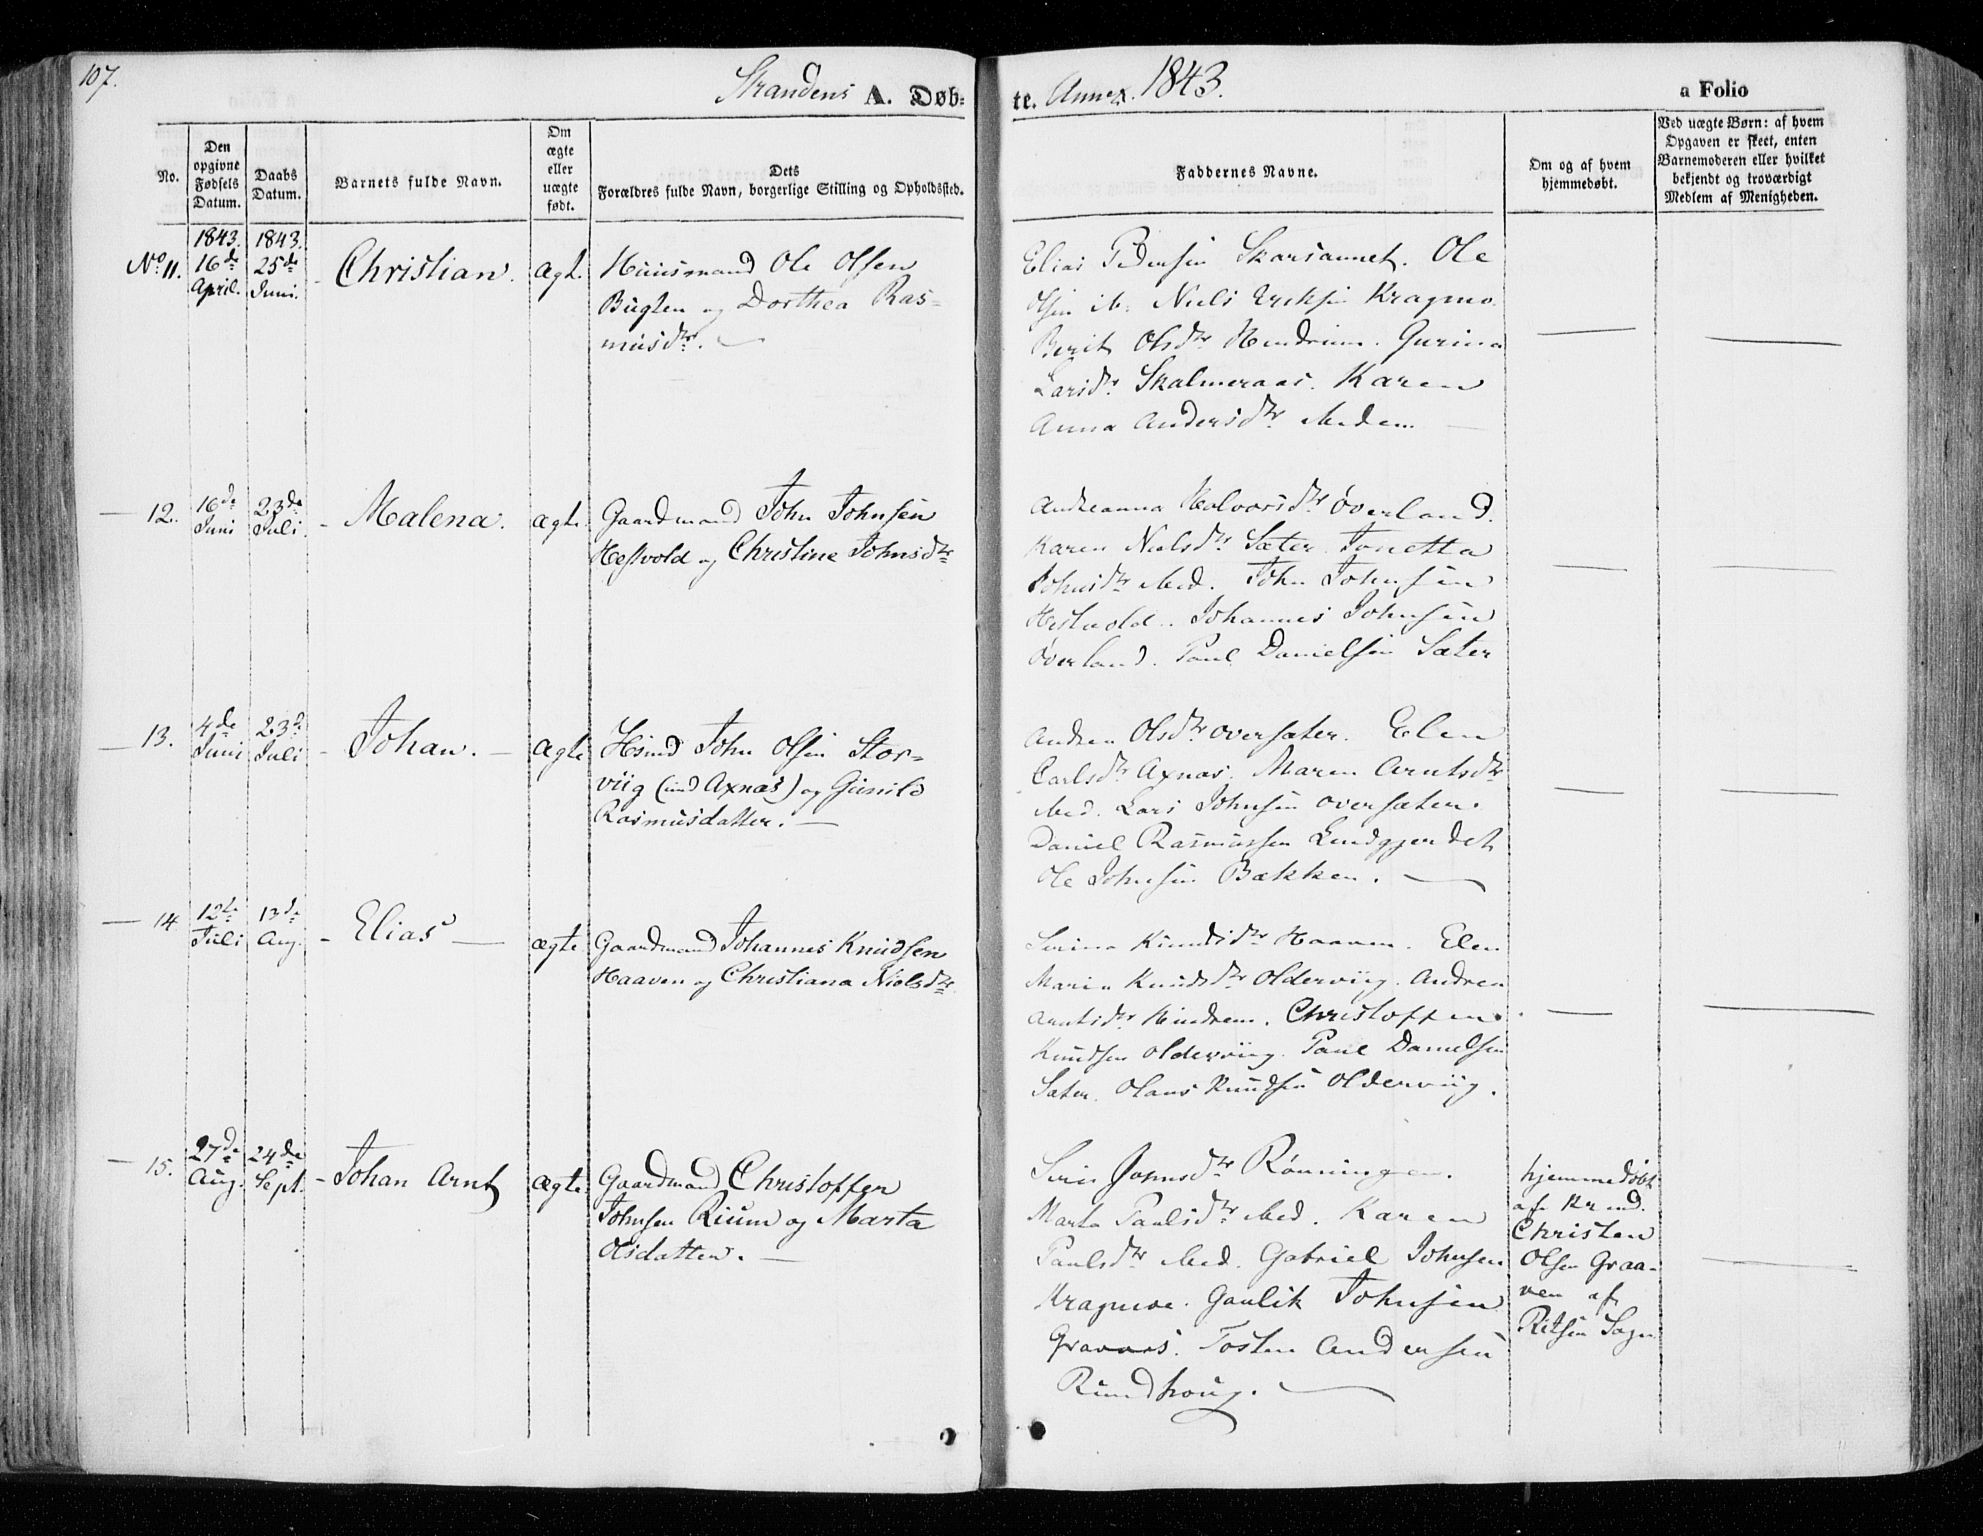 107.
Strandens A. Døb-
te. Annex. 1843.
a Folio
No.
Den opgivne Fødsels Datum.
Daabs Datum.
Barnets fulde Navn.
Om ægte eller uægte født.
Dets
Forældres fulde Navn, borgerlige Stilling og Opholdssted.
Faddernes Navne.
Om og af hvem hjemmedøbt.
Ved uægte Børn: af hvem Opgaven er skeet, enten Barnemoderen eller hvilket bekjendt og troværdigt Medlem af Menigheden.
No. 11.
1843. 16de April.
1843. 25de Juni.
Christian.
Ægte.
Huusmand Ole Olsen
Bugten og Dorthea Ras-
musdtr.
Elias Pedersen Skarsaunet. Ole
Olsen ib. Niels Erichsen Kragmo.
Berit Olsdtr Hindrum. Gurina
Larsdtr. Skalmeraas. Karen
Anna Andersdtr ibidem.
12.
16de Juni
23de Juli.
Malena.
Ægte.
Gaardmand John Johnsen
Hestvold og Christine Johnsdtr
Andreanna Holvorsdtr Øverland.
Karen Nielsdtr Sæter. Jonetta
Johnsdtr ibid. John Johnsen
Hestvold. Johannes Johnsen
Øverland. Paul Danielsen Sæter
13.
4de Juni
23de Juli
Johan.
Ægte
Hsmd John Olsen Stor-
viig (und Axnæs) og Gunild
Rasmusdatter.
Andrea Olsdtr Oversæter. Elen
Carlsdtr Axnæs. Maren Arntsdtr
ibid. Lars Johnsen Oversæter.
Daniel Rasmussen
Ole Johnsen Bækken.
14
12te Juli
13de Aug.
Elias
Ægte
Gaardmand Johannes Knudsen
Haaven og Christiana Nielsdtr.
Serina Knudsdtr Haaven. Elen
Maria Knudsdtr Olderviig. Andrea
Arntsdtr Hindrem. Christoffer
Knudsen Olderviig. Paul Danielsen
Sæter. Olaus Knudsen Olderviig.
15.
27de Aug.
24de Sept.
Johan Arnt
Ægte.
Gaardmand Christoffer
Johnsen Rium og Marta
Olsdatter.
Siri Johnsdtr Rønningen.
Marta Paulsdtr ibid. Karen
Paulsdtr ibid. Gabriel Johnsen
Kragmoe. Gaulik Johnsen
Gravaas. Tosten Andersen
Rundhoug.
hjemmedøbt
af
Christen
Olsen Graa-
ven af
Ritsen Sogn